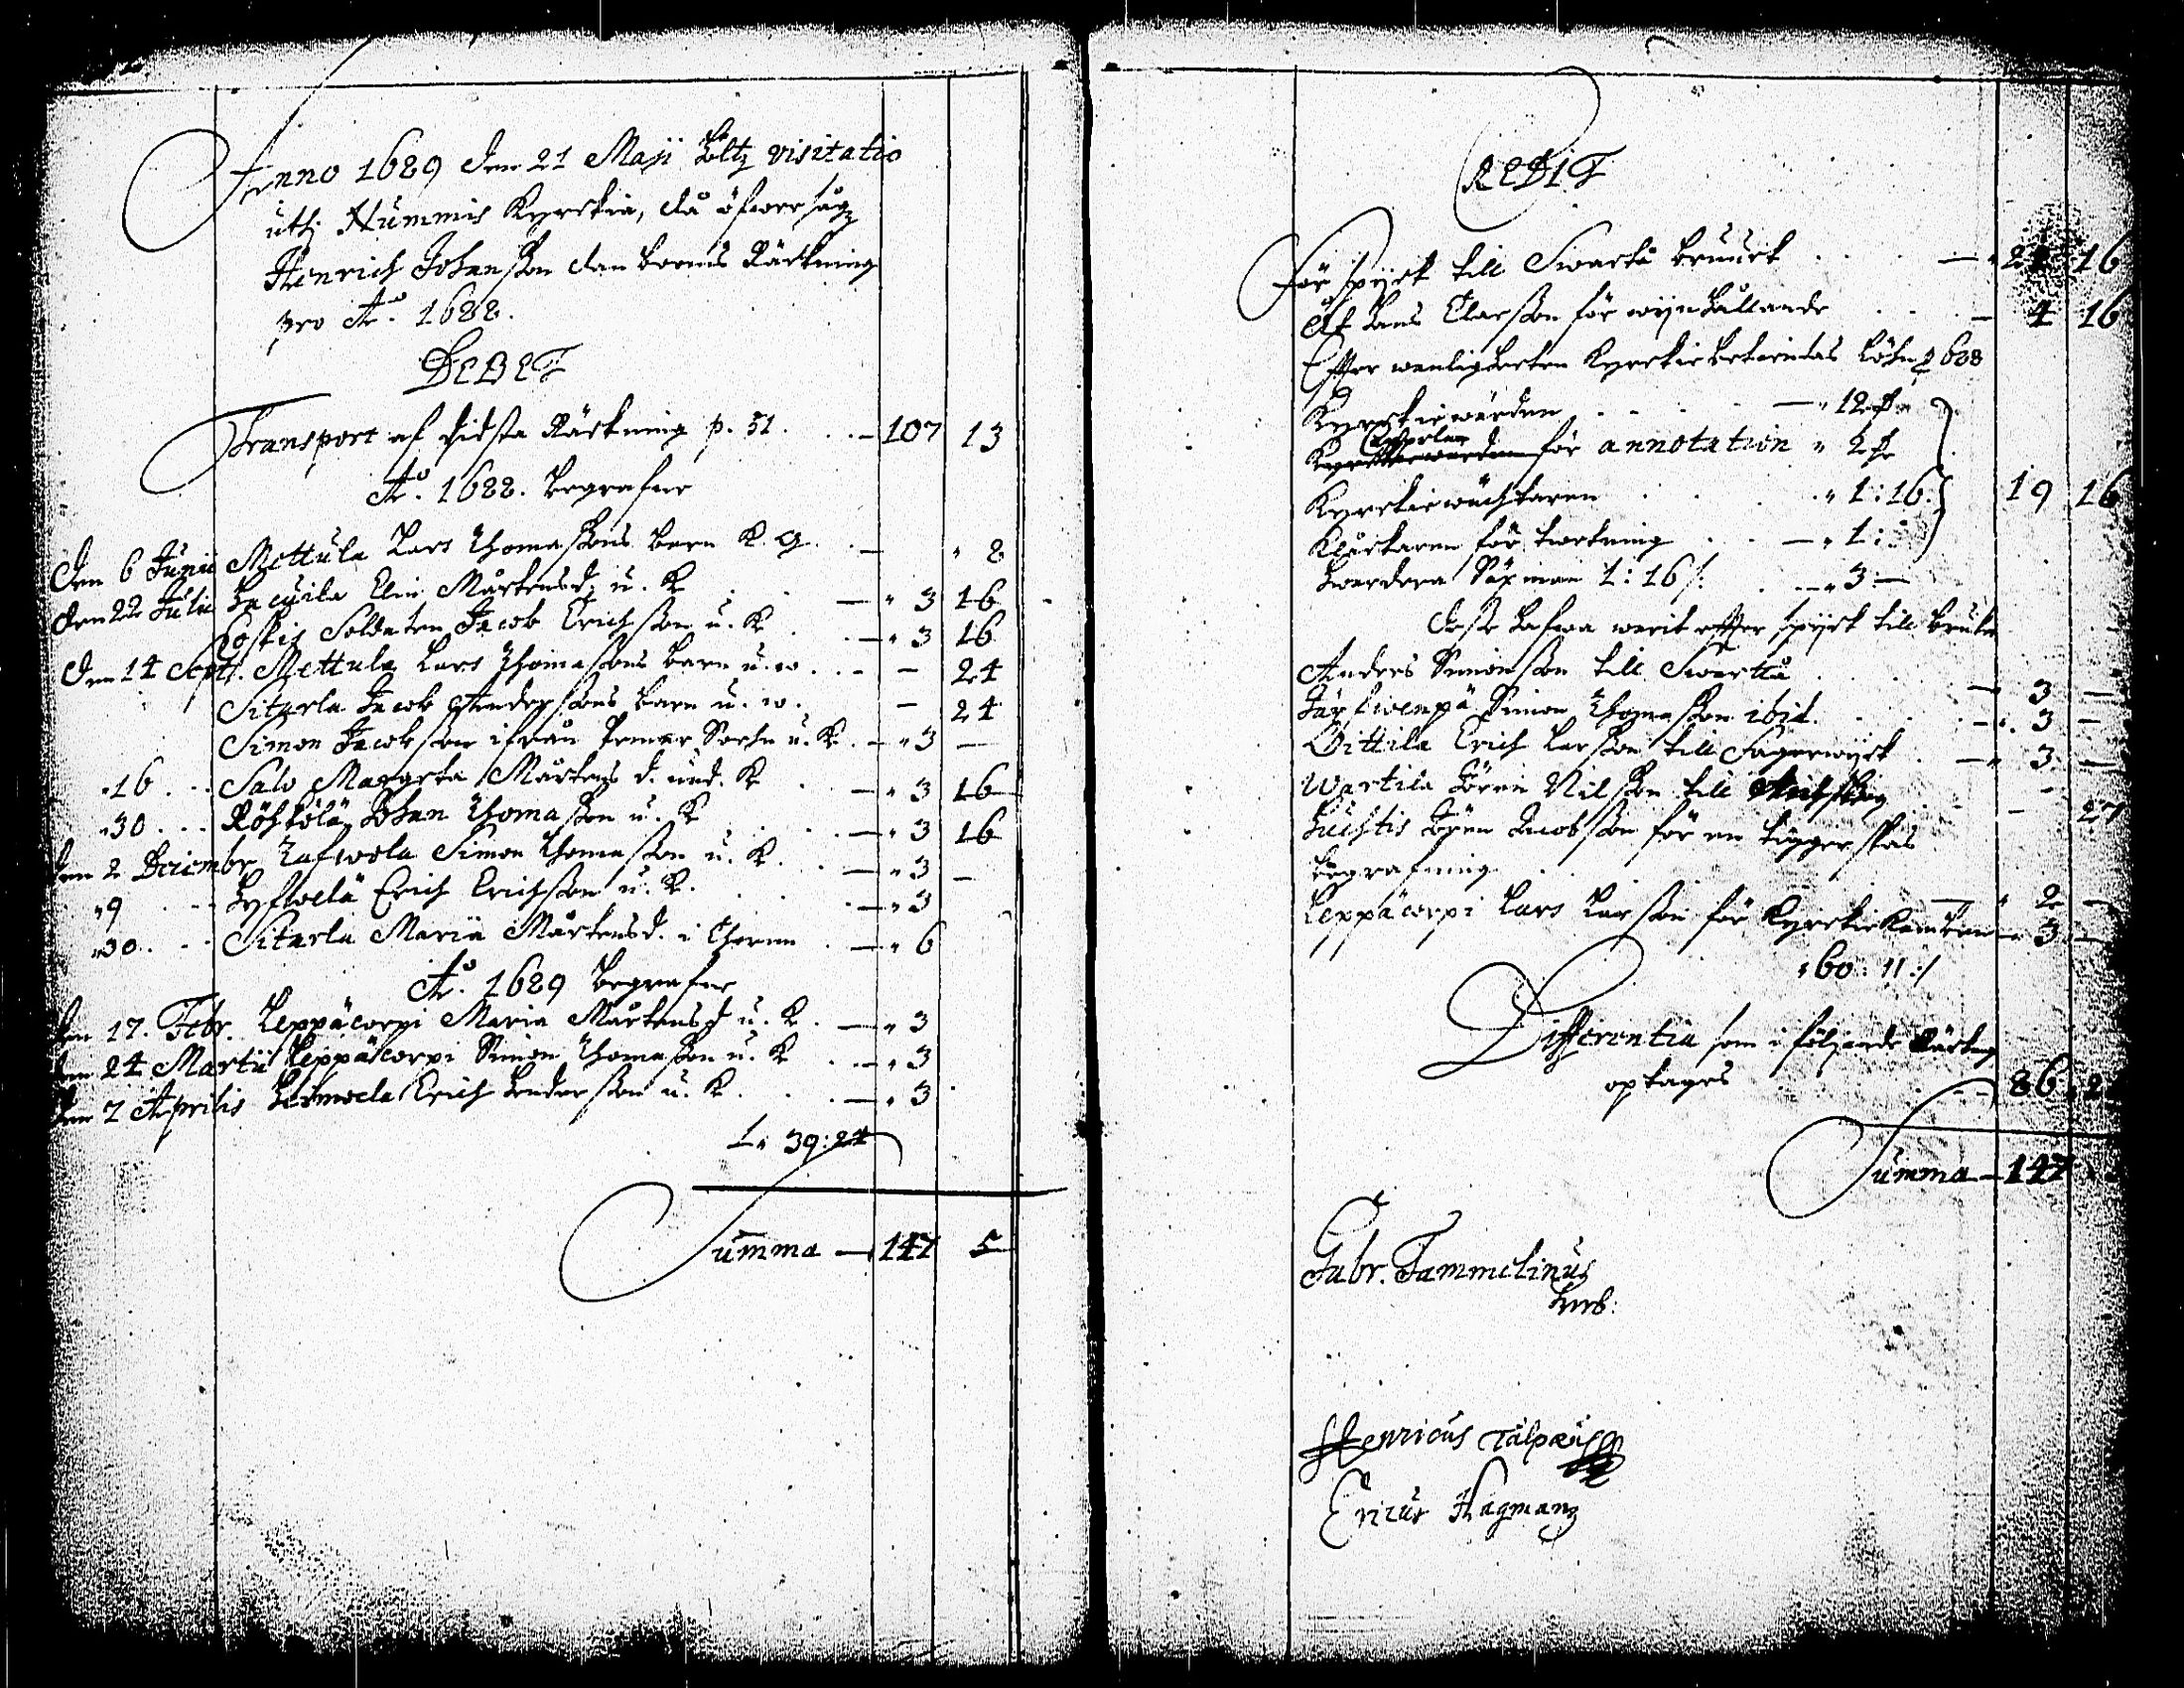 Anno 1689 den 21 Maji höltz visitatio
uthj Nummis Kyrckia, då öfwersågz
Henrich Johansson dan boens Räckning
pro Ao. 1688.
DEBET
Transport af sidsta Räckning p. 31. 107 13
Ao. 1688. begrafne
den 6 Junii Mettula Lars Thomassons barn K. G. 8
den 22 Julii Elin Mårtensd. u. K 3 16
Poskis Soldaten Jacob Erichsson u. K 3 16
den 14 Sept. Mettula Lars Thomassons barn u. w. 24
Sitarla Jacob Anderssons barn u. w. 24
Simon Jacobsson ifrån u. K. 3
16 Salo Margeta Mårtens d. und. K 3 16
30 Röhkölä Johan Thomasson u. K 3 16
den 2 Decembr Simon Thomasson u. K. 3
9 Hyfwelä Erich Erichsson u. K. 3
30 Sitarla Maria Mårtensd. i 6
Ao. 1689 begrafne
den 17. Febr. Leppäcorpi Maria Mårtensd u. K 3
den 24 Martii Leppäkorpi Simon Thomasson u. K 3
den 7 Aprilis Erich Hendersson u. K 3
39:24
Summa 147 5
CREDIT
För spijck till Swartå bruuck 16
Af Hans Classon för wijnhållande 4 16
Effter wanligheeten Kyrckiebetientas löhn 688
Kyrckiewärden 12
Capelan för annotation 2
Kyrckiewächtaren 1:16 19 16
Klåckaren för twetning 1:
Sexman 1:16 3
desse hafwa warit effter spijck till bruken
Anders Simonsson till Swartå 3
Järfwenpä Simon Thomasson ibid. 3
Oittila Erich Larsson till Fagerwijck 3
Wartila Jören Nilsson till 27
Huhtis Jören Jacobsson för en tiggerskas
begrafning 2
Leppäcorpi Lars Larsson för Kyrckie 3
60:11
Differentia som i följande Räckng
optages 86
Summa 147
Gabr. Tammelinus
Henricus Talpæus
Ericus Hagman